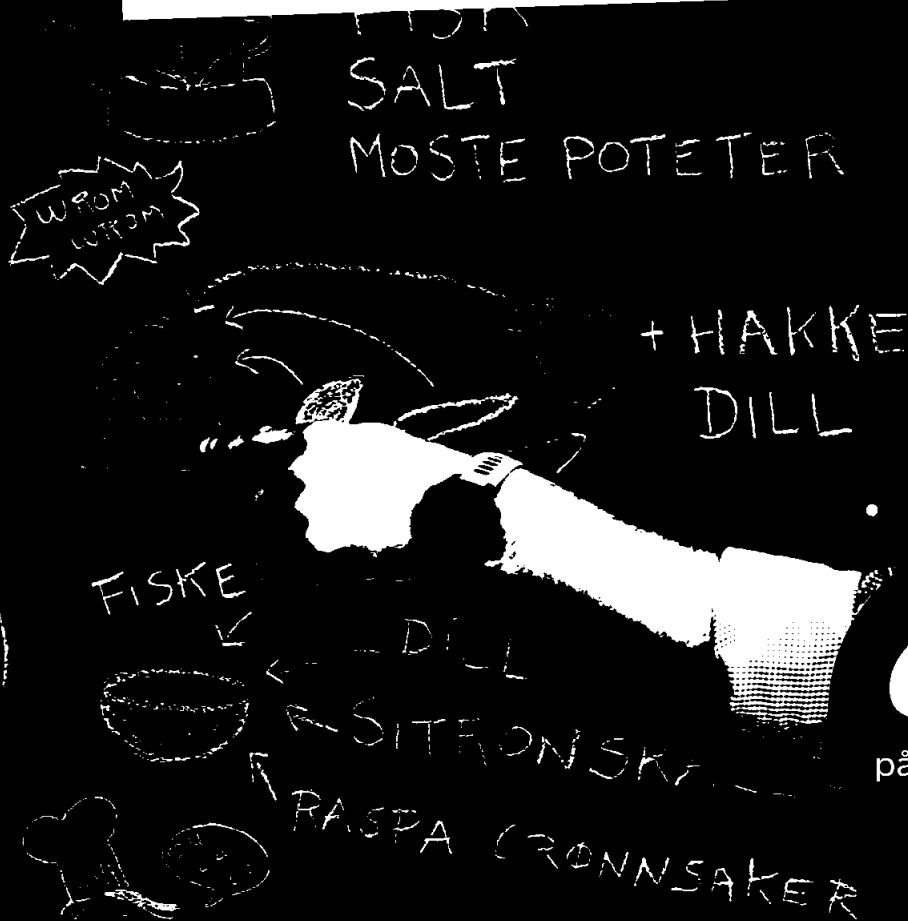 FISK
SALT
MOSTE POTETER
WROM
WROM
+ HAKKE
DILL
FISKE
DILL
SITRONSK
RASPA GRØNNSAKER
på